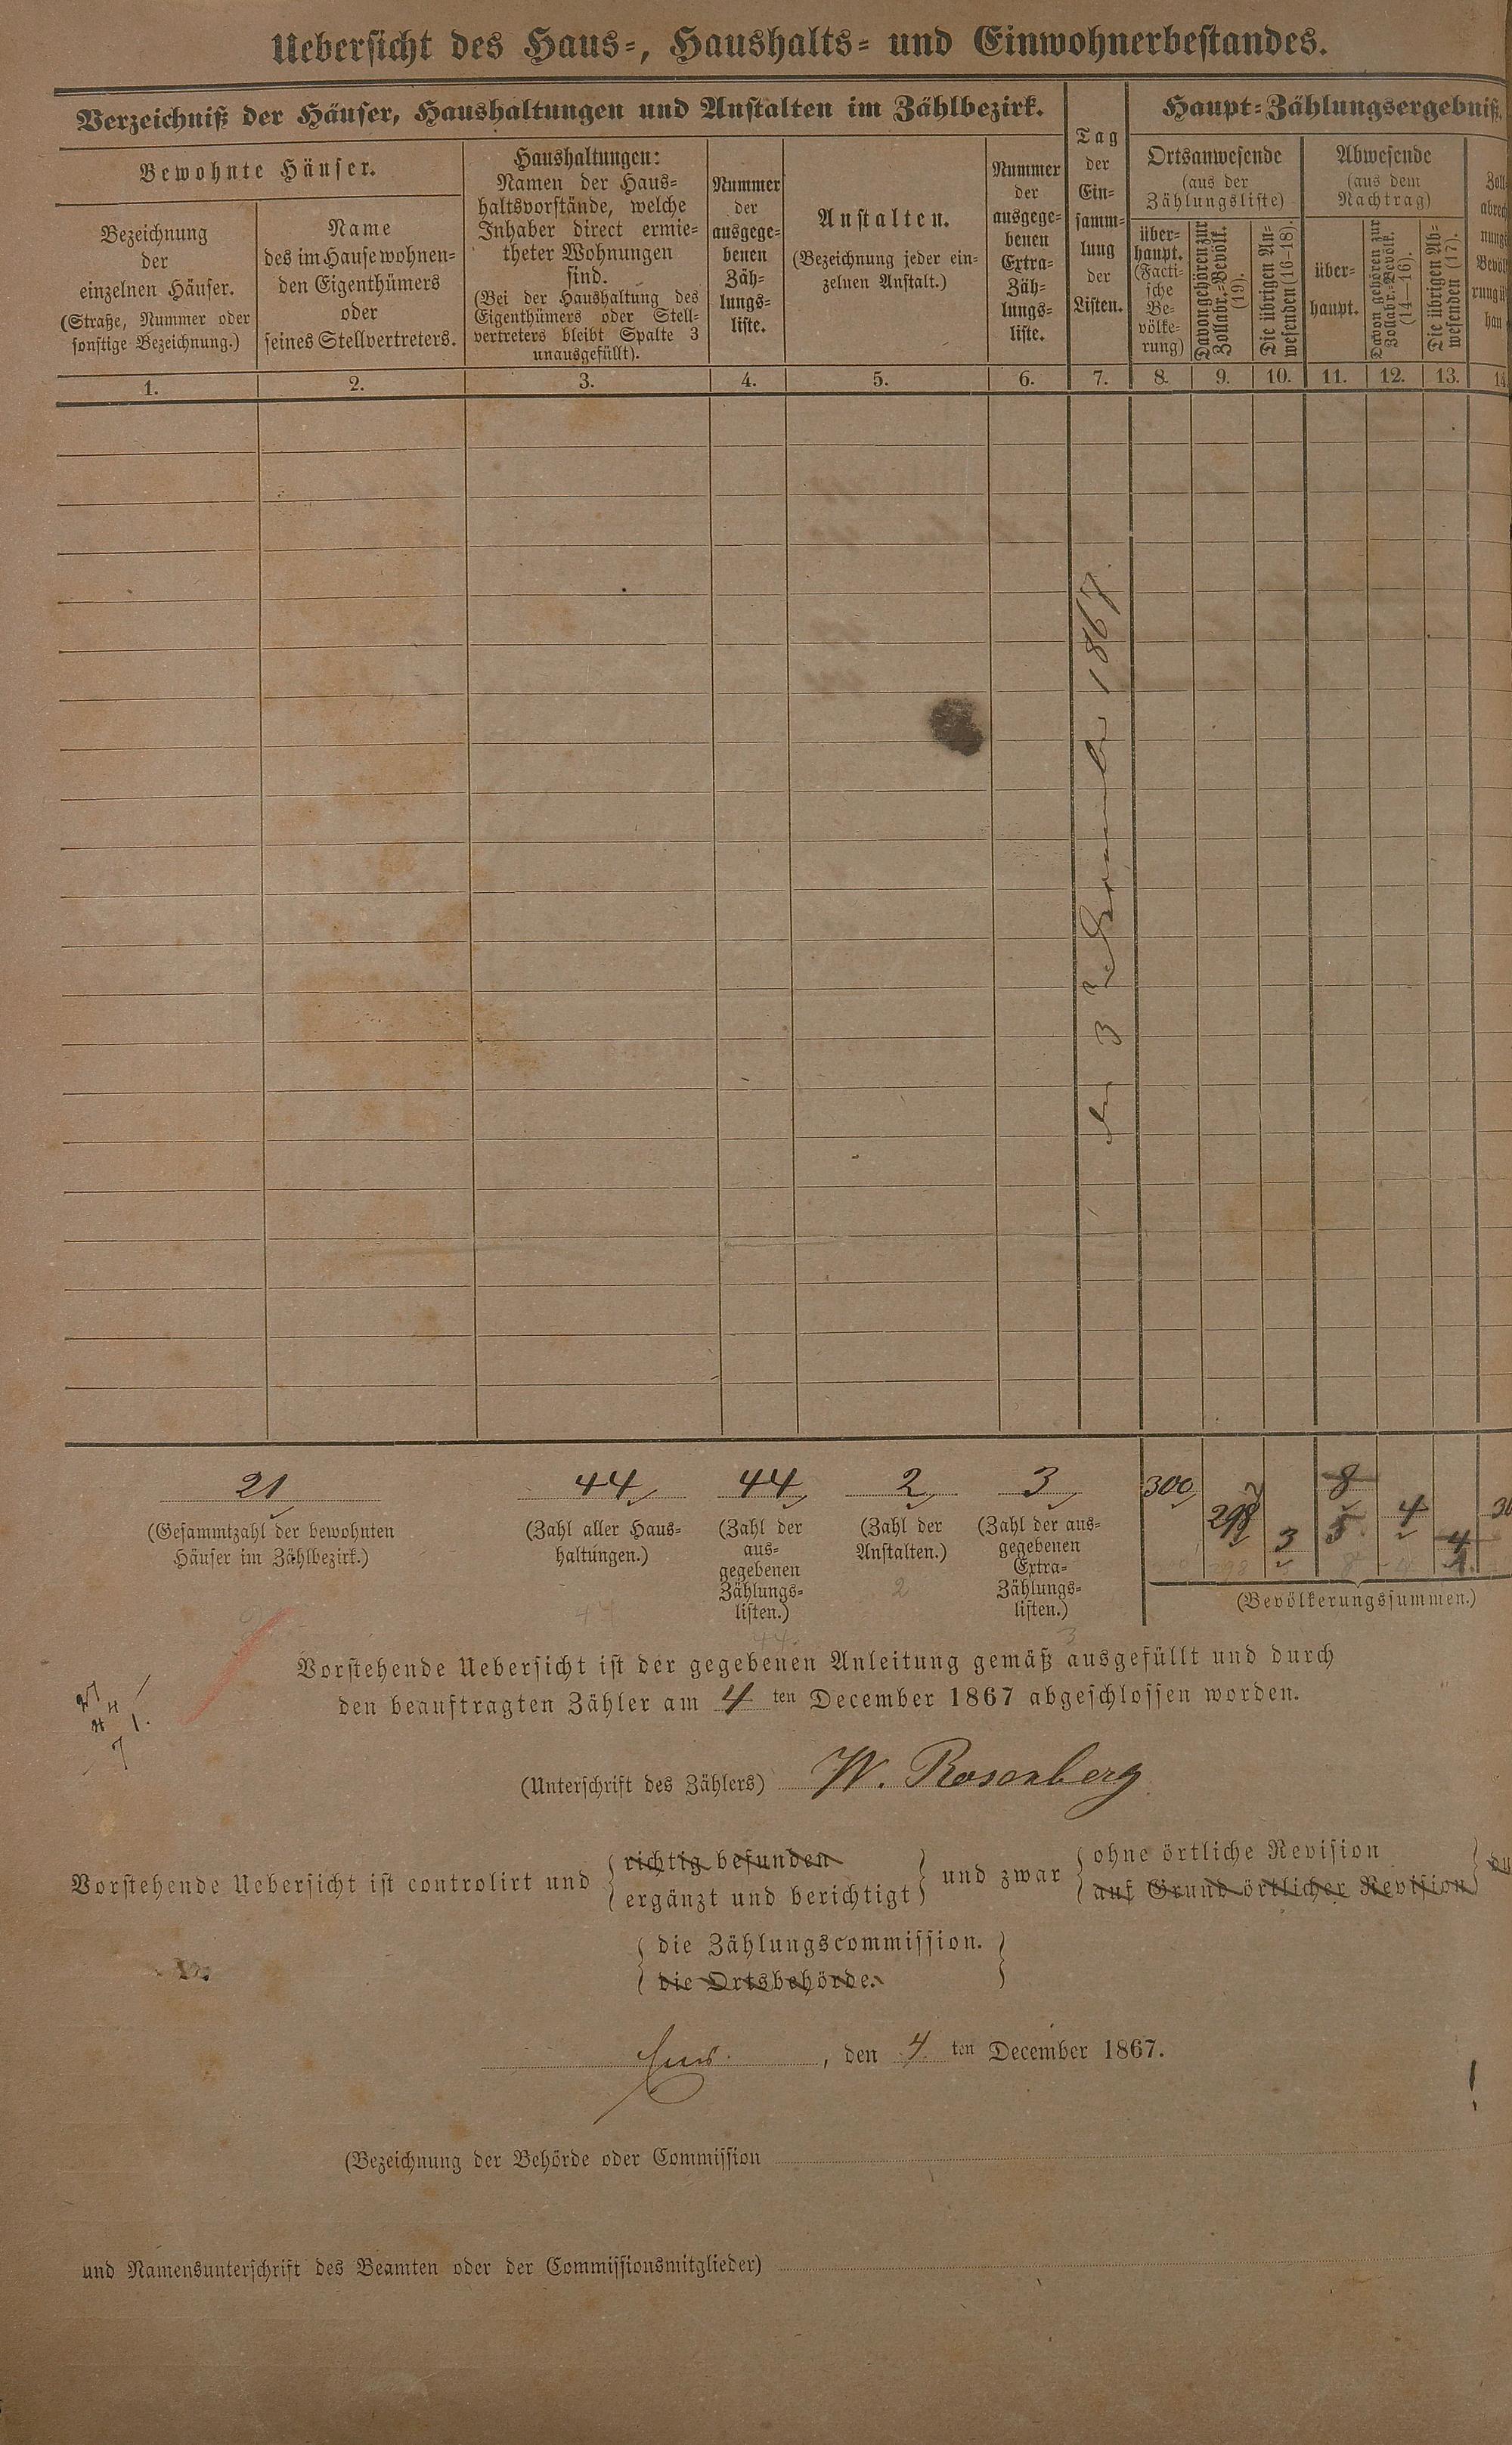 Uebersicht des Haus-, Haushalts- und Einwohnerbestandes.
Verzeichniß der Häuser, Haushaltungen und Anstalten im Zählbezirk.
Bewohnte Häuser.
Bezeichnung
der
einzelnen Häuser.
(Straße, Nummer oder
sonstige Bezeichnung.)
Name
des im Hause wohnen-
den Eigenthümers
oder
seines Stellvertreters.
Haushaltungen:
Namen der Haus-
haltsvorstände, welche
Inhaber direct ermie-
theter Wohnungen
sind.
(Bei der Haushaltung des
Eigenthümers oder Stell-
vertreters bleibt Spalte 3
unausgefüllt).
Nummer
der
ausgege-
benen
Zäh-
lungs-
liste.
Anstalten.
(Bezeichnung jeder ein-
zelnen Anstalt.)
Nummer
der
ausgege-
benen
Extra-
Zäh-
lungs-
liste.
Tag
der
Ein-
samm-
lung
der
Listen.
Haupt-Zählungsergebniß.
Ortsanwesende
(aus der
Zählungsliste)
über-
haupt.
(Facti-
sche
Be-
völke-
rung)
Davon gehören zur
Zollabr.-Bevölk.
(19).
Die übrigen An-
wesenden (16—18).
Abwesende
(aus dem
Nachtrag)
über-
haupt.
Davon gehören zur
Zollabr.-Bevölk.
(14—16).
Die übrigen Ab-
wesenden (17).
Zoll
abrech
nungs
Bevöl
rung ü
hau
1. 2. 3. 4. 5. 6. 7. 8. 9. 10. 11. 12. 13. 14
3 1867.
21 44 44 2 3 300 3 8 5 4 4
(Gesammtzahl der bewohnten
Häuser im Zählbezirk.)
(Zahl aller Haus-
haltungen.)
(Zahl der
aus-
gegebenen
Zählungs-
listen.)
(Zahl der
Anstalten.)
(Zahl der aus-
gegebenen
Extra-
Zählungs-
listen.)
(Bevölkerungssummen.)
Vorstehende Uebersicht ist der gegebenen Anleitung gemäß ausgefüllt und durch
den beauftragten Zähler am 4 ten December 1867 abgeschlossen worden.
(Unterschrift des Zählers) W. Rosenberg
Vorstehende Uebersicht ist controlirt und { richtig befunden ergänzt und berichtigt } und zwar { ohne örtliche Revision auf Grund örtlicher Revision } du
{ die Zählungscommission.
die Ortsbehörde. }
, den 4 ten December 1867.
(Bezeichnung der Behörde oder Commission
und Namensunterschrift des Beamten oder der Commissionsmitglieder)